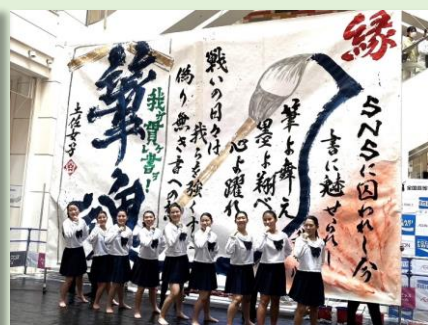 縁
SNSに囚われし今
書に魅せられし
筆よ舞え
墨よ翔べ
心よ躍れ
戦いの日々は
我らを強くす
偽り無き書への
我が貫く書!
筆魂
土佐女子